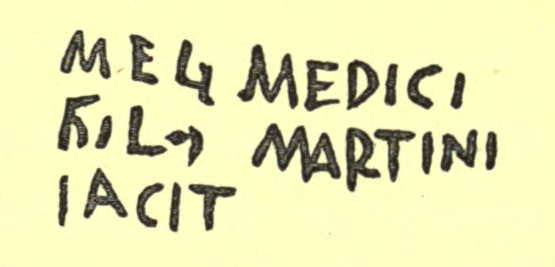 MELI MEDICI
FILI MARTINI
IACIT